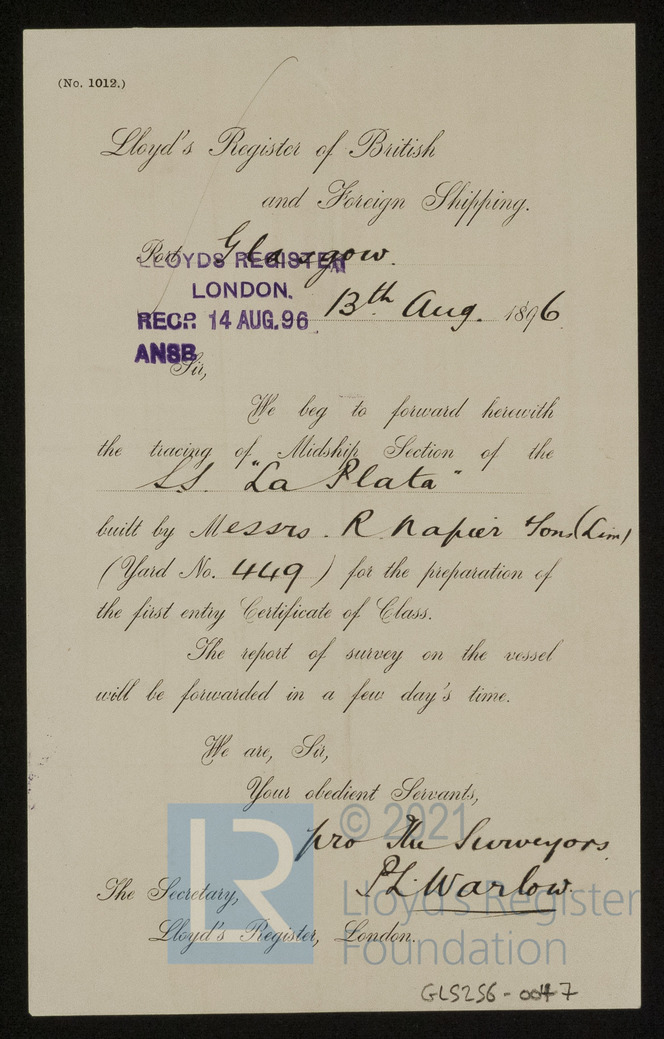 (No. 1012.)
Lloyd's Register of British
and Foreign Shipping.
Port Glasgow.
LLOYDS REGISTER
LONDON.
13th Aug. 1896
RECD. 14 AUG. 96
ANSD
Sir,
We beg to forward herewith
the tracing of Midship Section of the
S.S. "La Plata"
built by Messrs. R. Napier & Sons (Lim)
(Yard No. 449) for the preparation of
the first entry Certificate of Class.
The report of survey on the vessel
will be forwarded in a few day's time.
We are, Sir,
Your obedient Servants,
pro The Surveyors
P L Warlow.
The Secretary,
Lloyd's Register, London.
LR
© 2021
Lloyd's Register
Foundation
GLS256-0047